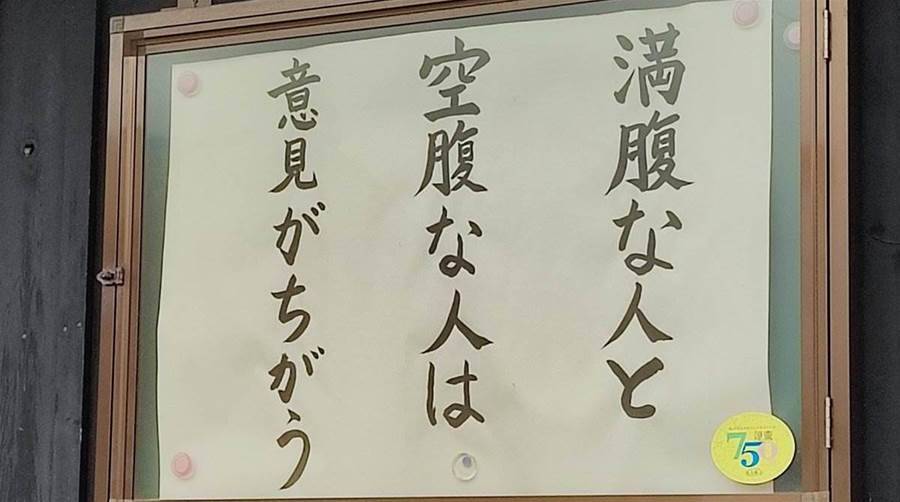 満腹な人と
空腹な人は
意見がちがう
750